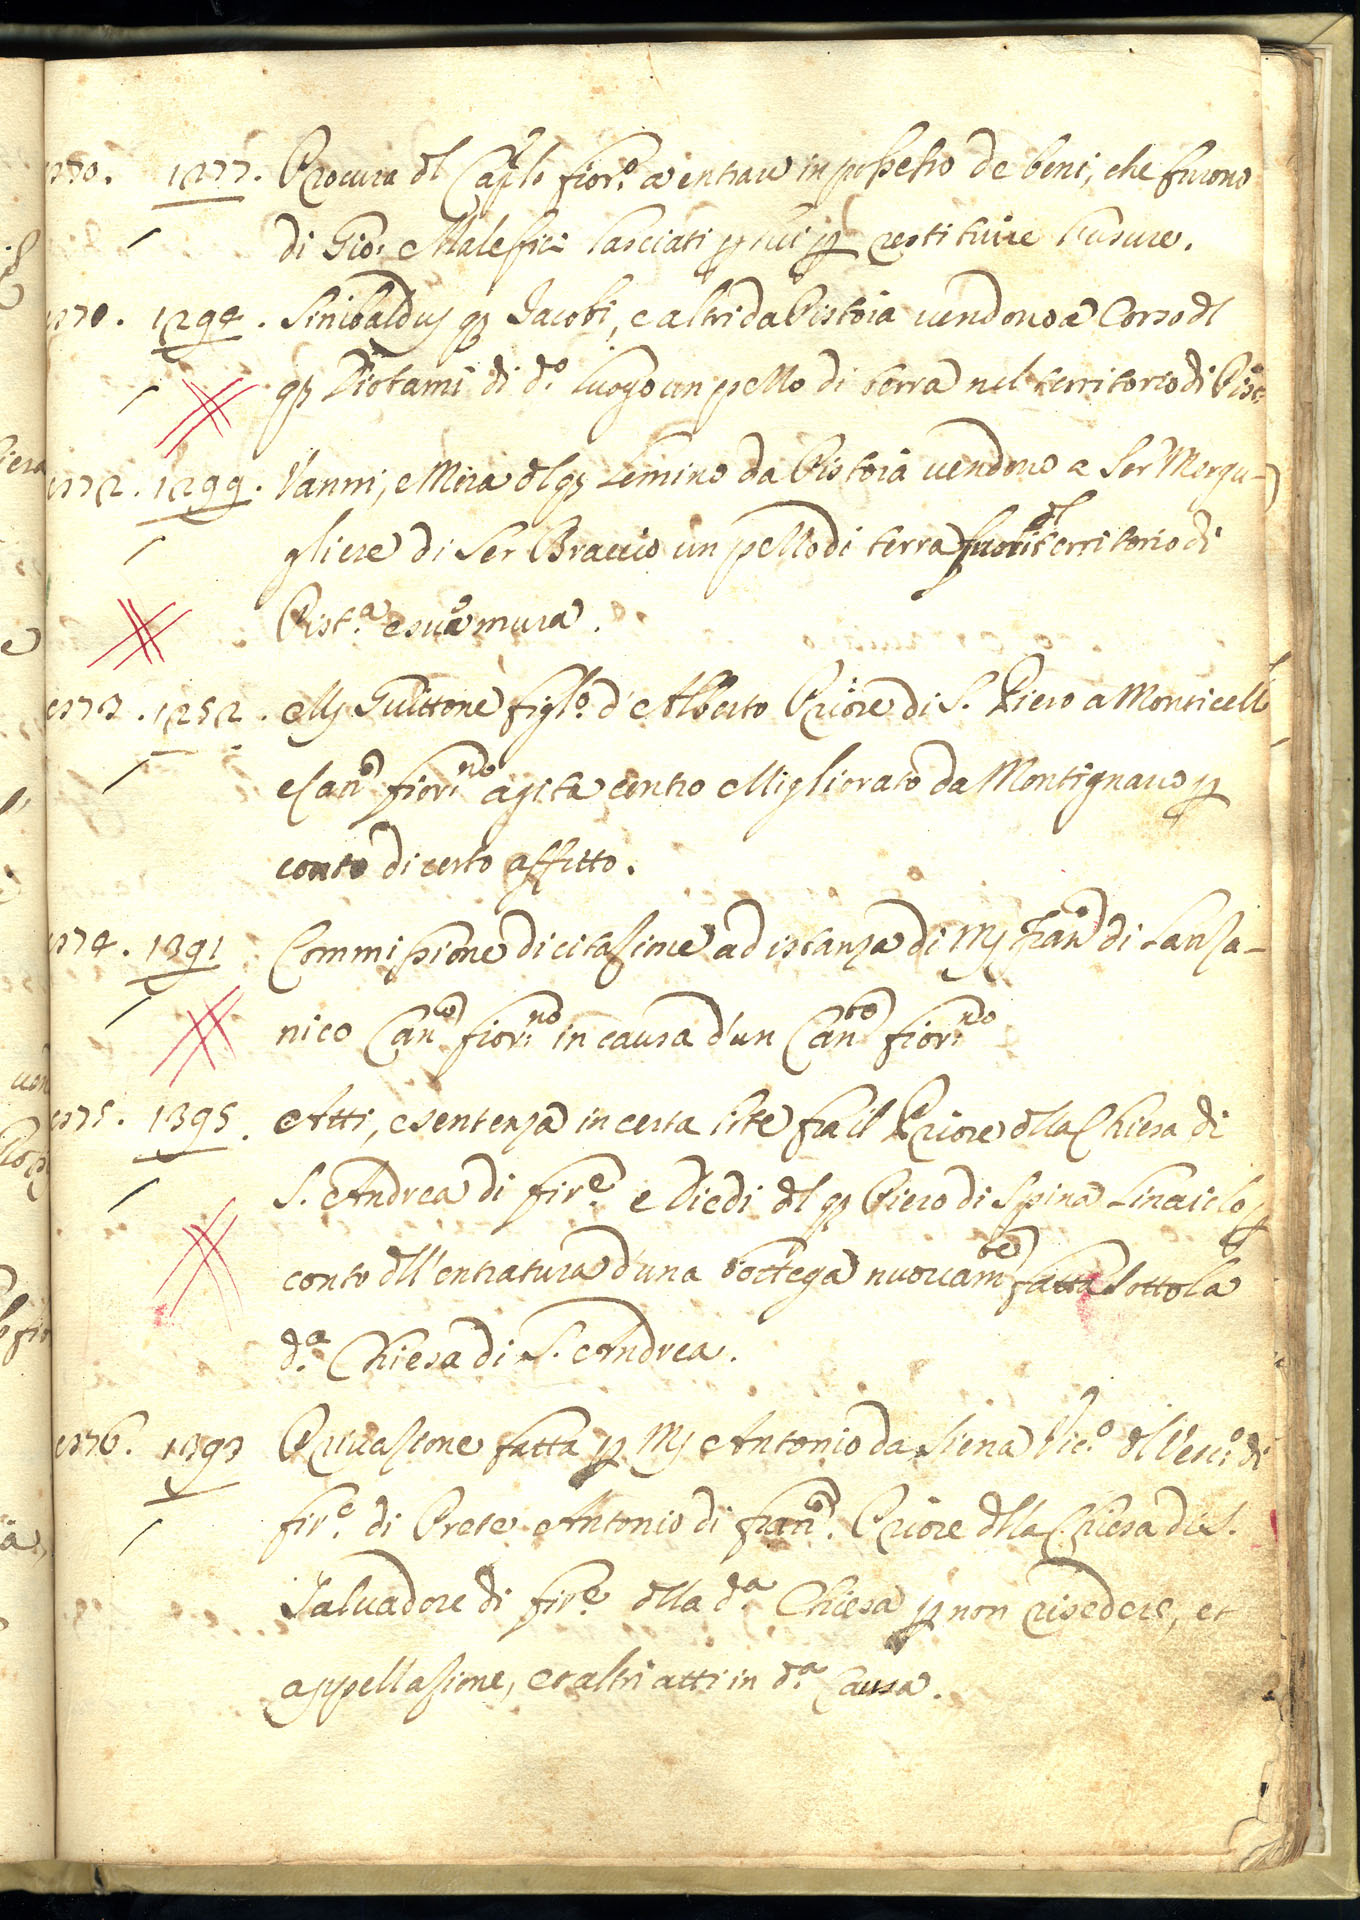 1270. 1277. Procura dl Caplo fior.º a entrare in possesso de beni, che furono
di Gio: Malefici lasciati p lui p restituire l'usure.
1270. 1294. Sinibaldus qp Jacobi, e altri da Pistoia vendono a Corso dl
qp Diotami di d.º luogo un pezzo di terra nel territorio di Pist:
1272. 1299. Vanni, e Mira dl qp Lemino da Pistoia vendono a Ser Morgu-
gliese di Ser Braccio un pezzo di terra fuori dl territorio di
Pist.ª e sua mura.
1273. 1252. Mj Guittone figlº. d'Alberto Priore di S. Piero a Monticelli
e Canº fiorno agita contro Migliorato da Montignano p
conto di certo affitto.
1274. 1391 Commissione di citazione ad istanza di Mj Franº di Lanza-
nico Canco fiorno in causa d'un Canto fiorno
1275. 1395. Atti, e sentenza in certa lite fra il Priore dlla Chiesa di
S. Andrea di fire e Diedi dl qp Piero di Spina Linaiolo p
conto dll'entratura d'una bottega nuovamte fatta sotto la
d.ª Chiesa di S. Andrea.
1276. 1393 Privazione fatta p Mj Antonio da Siena Vic.º dl Vesc.º di
fir.e di Prete Antonio di franº. Priore dlla Chiesa di S.
Salvadore di fire dlla d.ª Chiesa p non risedere, et
appellazione, et altri atti in d.ª Causa.